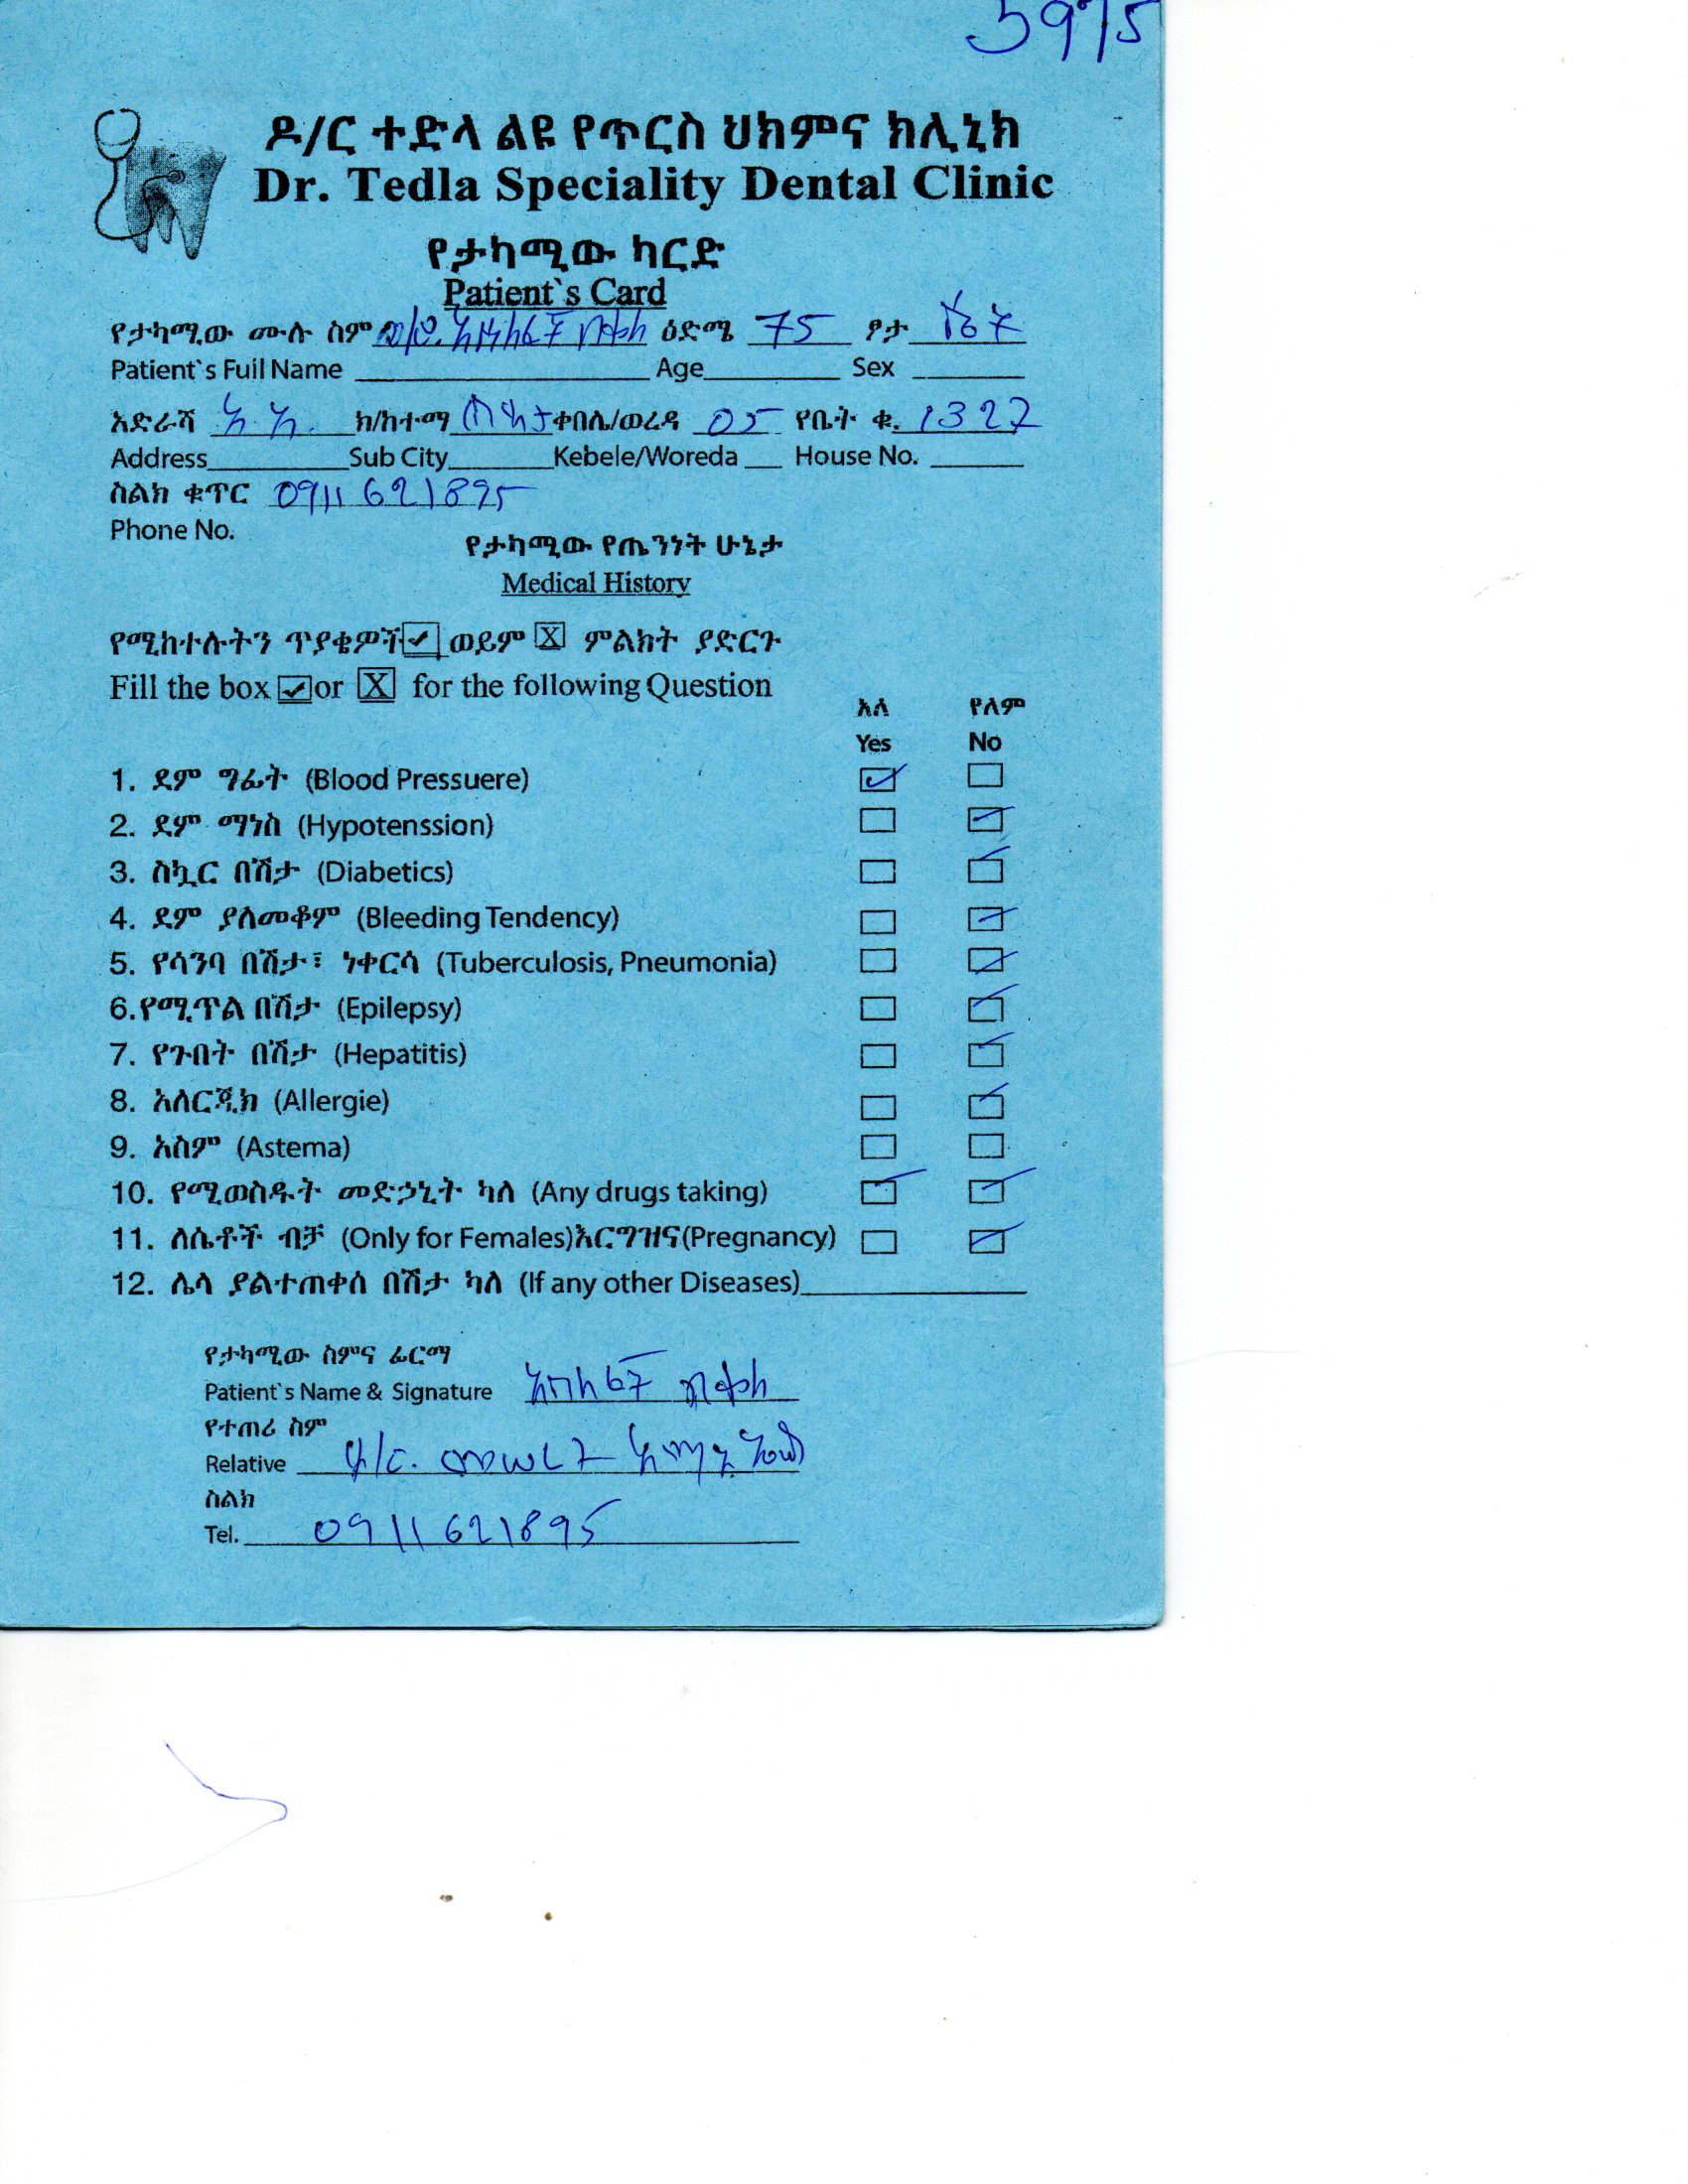 5975
ዶ/ር ተድላ ልዩ የጥርስ ህክምና ክሊኒክ
Dr. Tedla Speciality Dental Clinic
የታካሚው ካርድ
Patient`s Card
የታካሚው ሙሉ ስም ዕድሜ 75 ፆታ ሴት
Patient`s Full Name Age Sex
አድራሻ አ.አ. ክ/ከተማ ቀበሌ/ወረዳ 05 የቤት ቁ. 1327
Address Sub City Kebele/Woreda House No.
ስልክ ቁጥር 0911621895
Phone No.
የታካሚው የጤንነት ሁኔታ
Medical History
የሚከተሉትን ጥያቄዎች ✓ ወይም X ምልክት ያድርጉ
Fill the box ✓ or X for the following Question
አለ የለም
Yes No
1. ደም ግፊት (Blood Pressuere)
2. ደም ማነስ (Hypotenssion)
3. ስኳር በሽታ (Diabetics)
4. ደም ያለመቆም (Bleeding Tendency)
5. የሳንባ በሽታ፣ ነቀርሳ (Tuberculosis, Pneumonia)
6.የሚጥል በሽታ (Epilepsy)
7. የጉበት በሽታ (Hepatitis)
8. አለርጂክ (Allergie)
9. አስም (Astema)
10. የሚወስዱት መድኃኒት ካለ (Any drugs taking)
11. ለሴቶች ብቻ (Only for Females)እርግዝና(Pregnancy)
12. ሌላ ያልተጠቀሰ በሽታ ካለ (If any other Diseases)
የታካሚው ስምና ፊርማ
Patient`s Name & Signature
የተጠሪ ስም
Relative
ስልክ
Tel. 0911621895